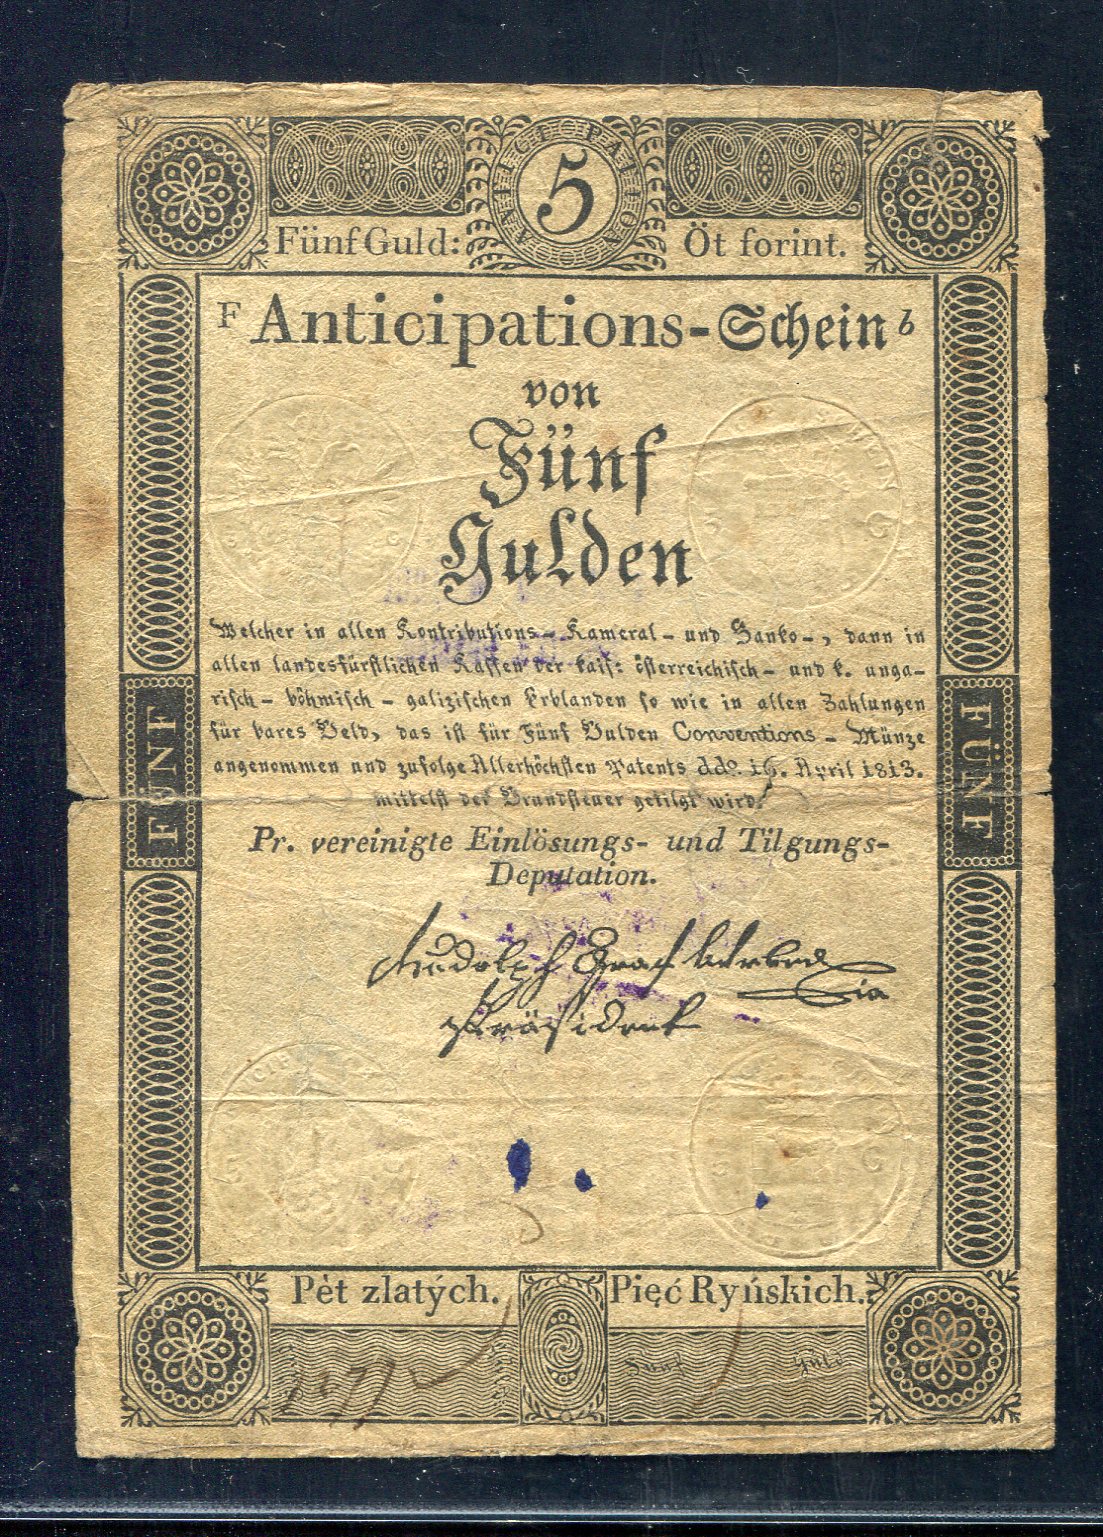 ANTICIPATION
5
Fünf Guld: Öt forint.
F Anticipations-Schein b
von
Fünf
Gulden
Welcher in allen Kontributions- Kameral- und Banko-, dann in
allen landesfürstlichen Kassen der kais: österreichisch- und k. unga-
risch- böhmisch- galizischen Erblanden so wie in allen Zahlungen
für bares Geld, das ist für Fünf Gulden Conventions- Münze
angenommen und zufolge Allerhöchsten Patents ddo. 16. April 1813.
mittelst der Grundsteuer getilgt wird.
Pr. vereinigte Einlösungs- und Tilgungs-
Deputation.
Rudolph Graf
Präsident
FÜNF
FÜNF
Pèt zlatých. Pięć Ryńskich.
Fünf Guld